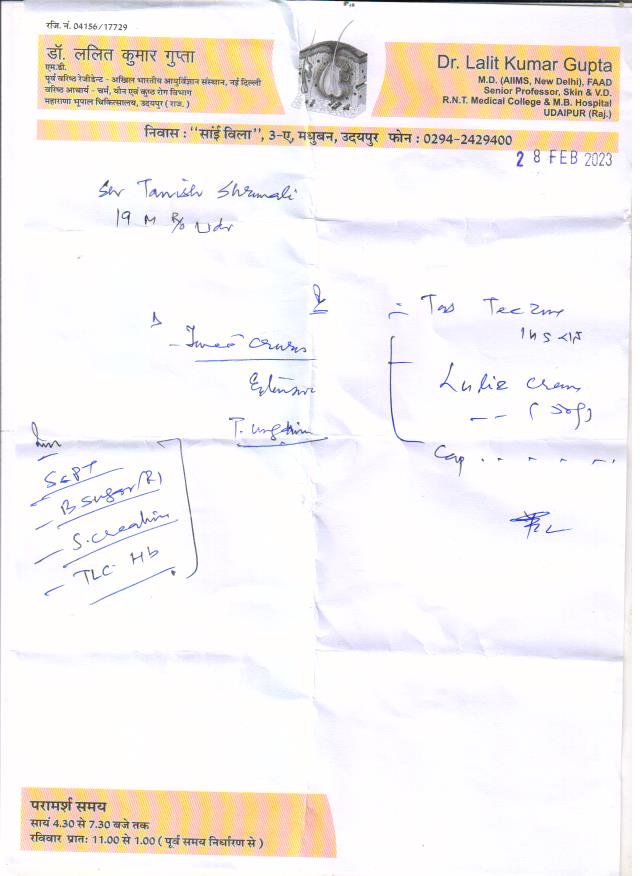 रजि. नं. 04156/17729
डॉ. ललित कुमार गुप्ता
एम.डी.
पूर्व वरिष्ठ रेजीडेन्ट - अखिल भारतीय आयुर्विज्ञान संस्थान, नई दिल्ली
वरिष्ठ आचार्य - चर्म, यौन एवं कुष्ठ रोग विभाग
महाराणा भूपाल चिकित्सालय, उदयपुर ( राज. )
Dr. Lalit Kumar Gupta
M.D. (AIIMS, New Delhi), FAAD
Senior Professor, Skin & V.D.
R.N.T. Medical College & M.B. Hospital
UDAIPUR (Raj.)
निवास : "सांई विला", 3-ए, मधुबन, उदयपुर फोन : 0294-2429400
2 8 FEB 2023
Tanish Shrimali
19 M R/o Udr
Tab
cruris
Cream
Extensive
Cap . . . . . .
B sugar (R)
S. creatinine
TLC Hb
परामर्श समय
सायं 4.30 से 7.30 बजे तक
रविवार प्रातः 11.00 से 1.00 ( पूर्व समय निर्धारण से )